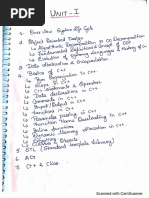 UNIT - I
1. Over view System Life Cycle
2. Object Oriented Design
→ Algorithmic Decomposition Vs OO Decomposition
→ Fundamental Definitions & Concepts of OOP
→ Evolution of Programming Languages & History of C++
3. Data Abstraction & Encapsulation
4. Basics of C++
→ Program Organization in C++
→ Scope in C++
→ C++ Statements & Operators
→ Data Declarations in C++
→ Comments in C++
→ Input / Output in C++
→ Functions in C++
→ Parameter Passing in C++
→ Function Name Overloading in C++
→ Inline Functions
→ Dynamic Memory allocation in C++
→ Exceptions
→ Classes & Objects
5. STL (Standard Template Library)
6. ADT
7. C++ & Class
Scanned with CamScanner